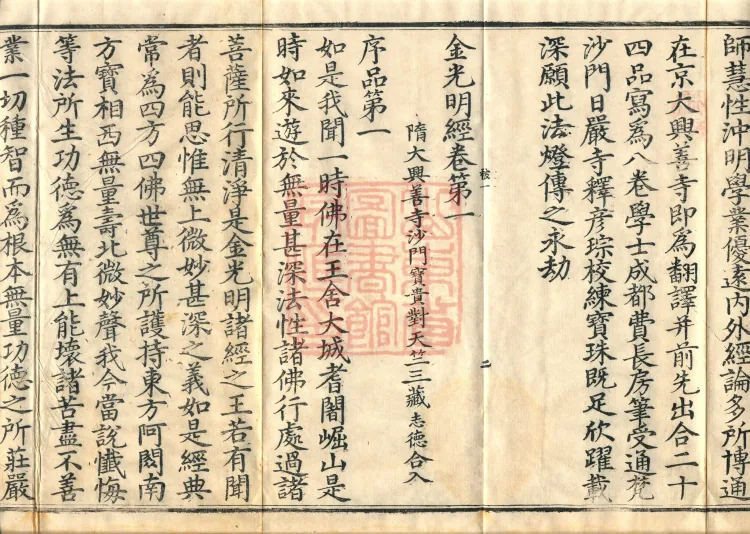 師慧性沖明學業優遠内外經論多所博通
在京大興善寺即爲翻譯并前先出合二十
四品寫爲八卷學士成都費長房筆受通梵
沙門日嚴寺釋彥琮校練寶珠既足欣躍載
深願此法燈傳之永劫
二
金光明經卷第一
隋大興善寺沙門寶貴對天竺三藏志德合入
序品第一
如是我聞一時佛在王舍大城耆闍崛山是
時如來遊於無量甚深法性諸佛行處過諸
菩薩所行清淨是金光明諸經之王若有聞
者則能思惟無上微妙甚深之義如是經典
常爲四方四佛世尊之所護持東方阿閦南
方寶相西無量壽北微妙聲我今當說懺悔
等法所生功德爲無有上能壞諸苦盡不善
業一切種智而爲根本無量功德之所莊嚴